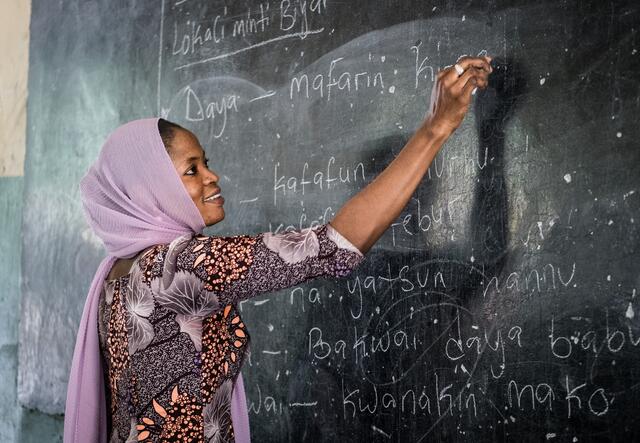 Lokaci minti Biyar
Daya — mafarin
— kafafun
rebur
na yatsun hannu
— Bakwai daya babu
wai — kwanakin mako